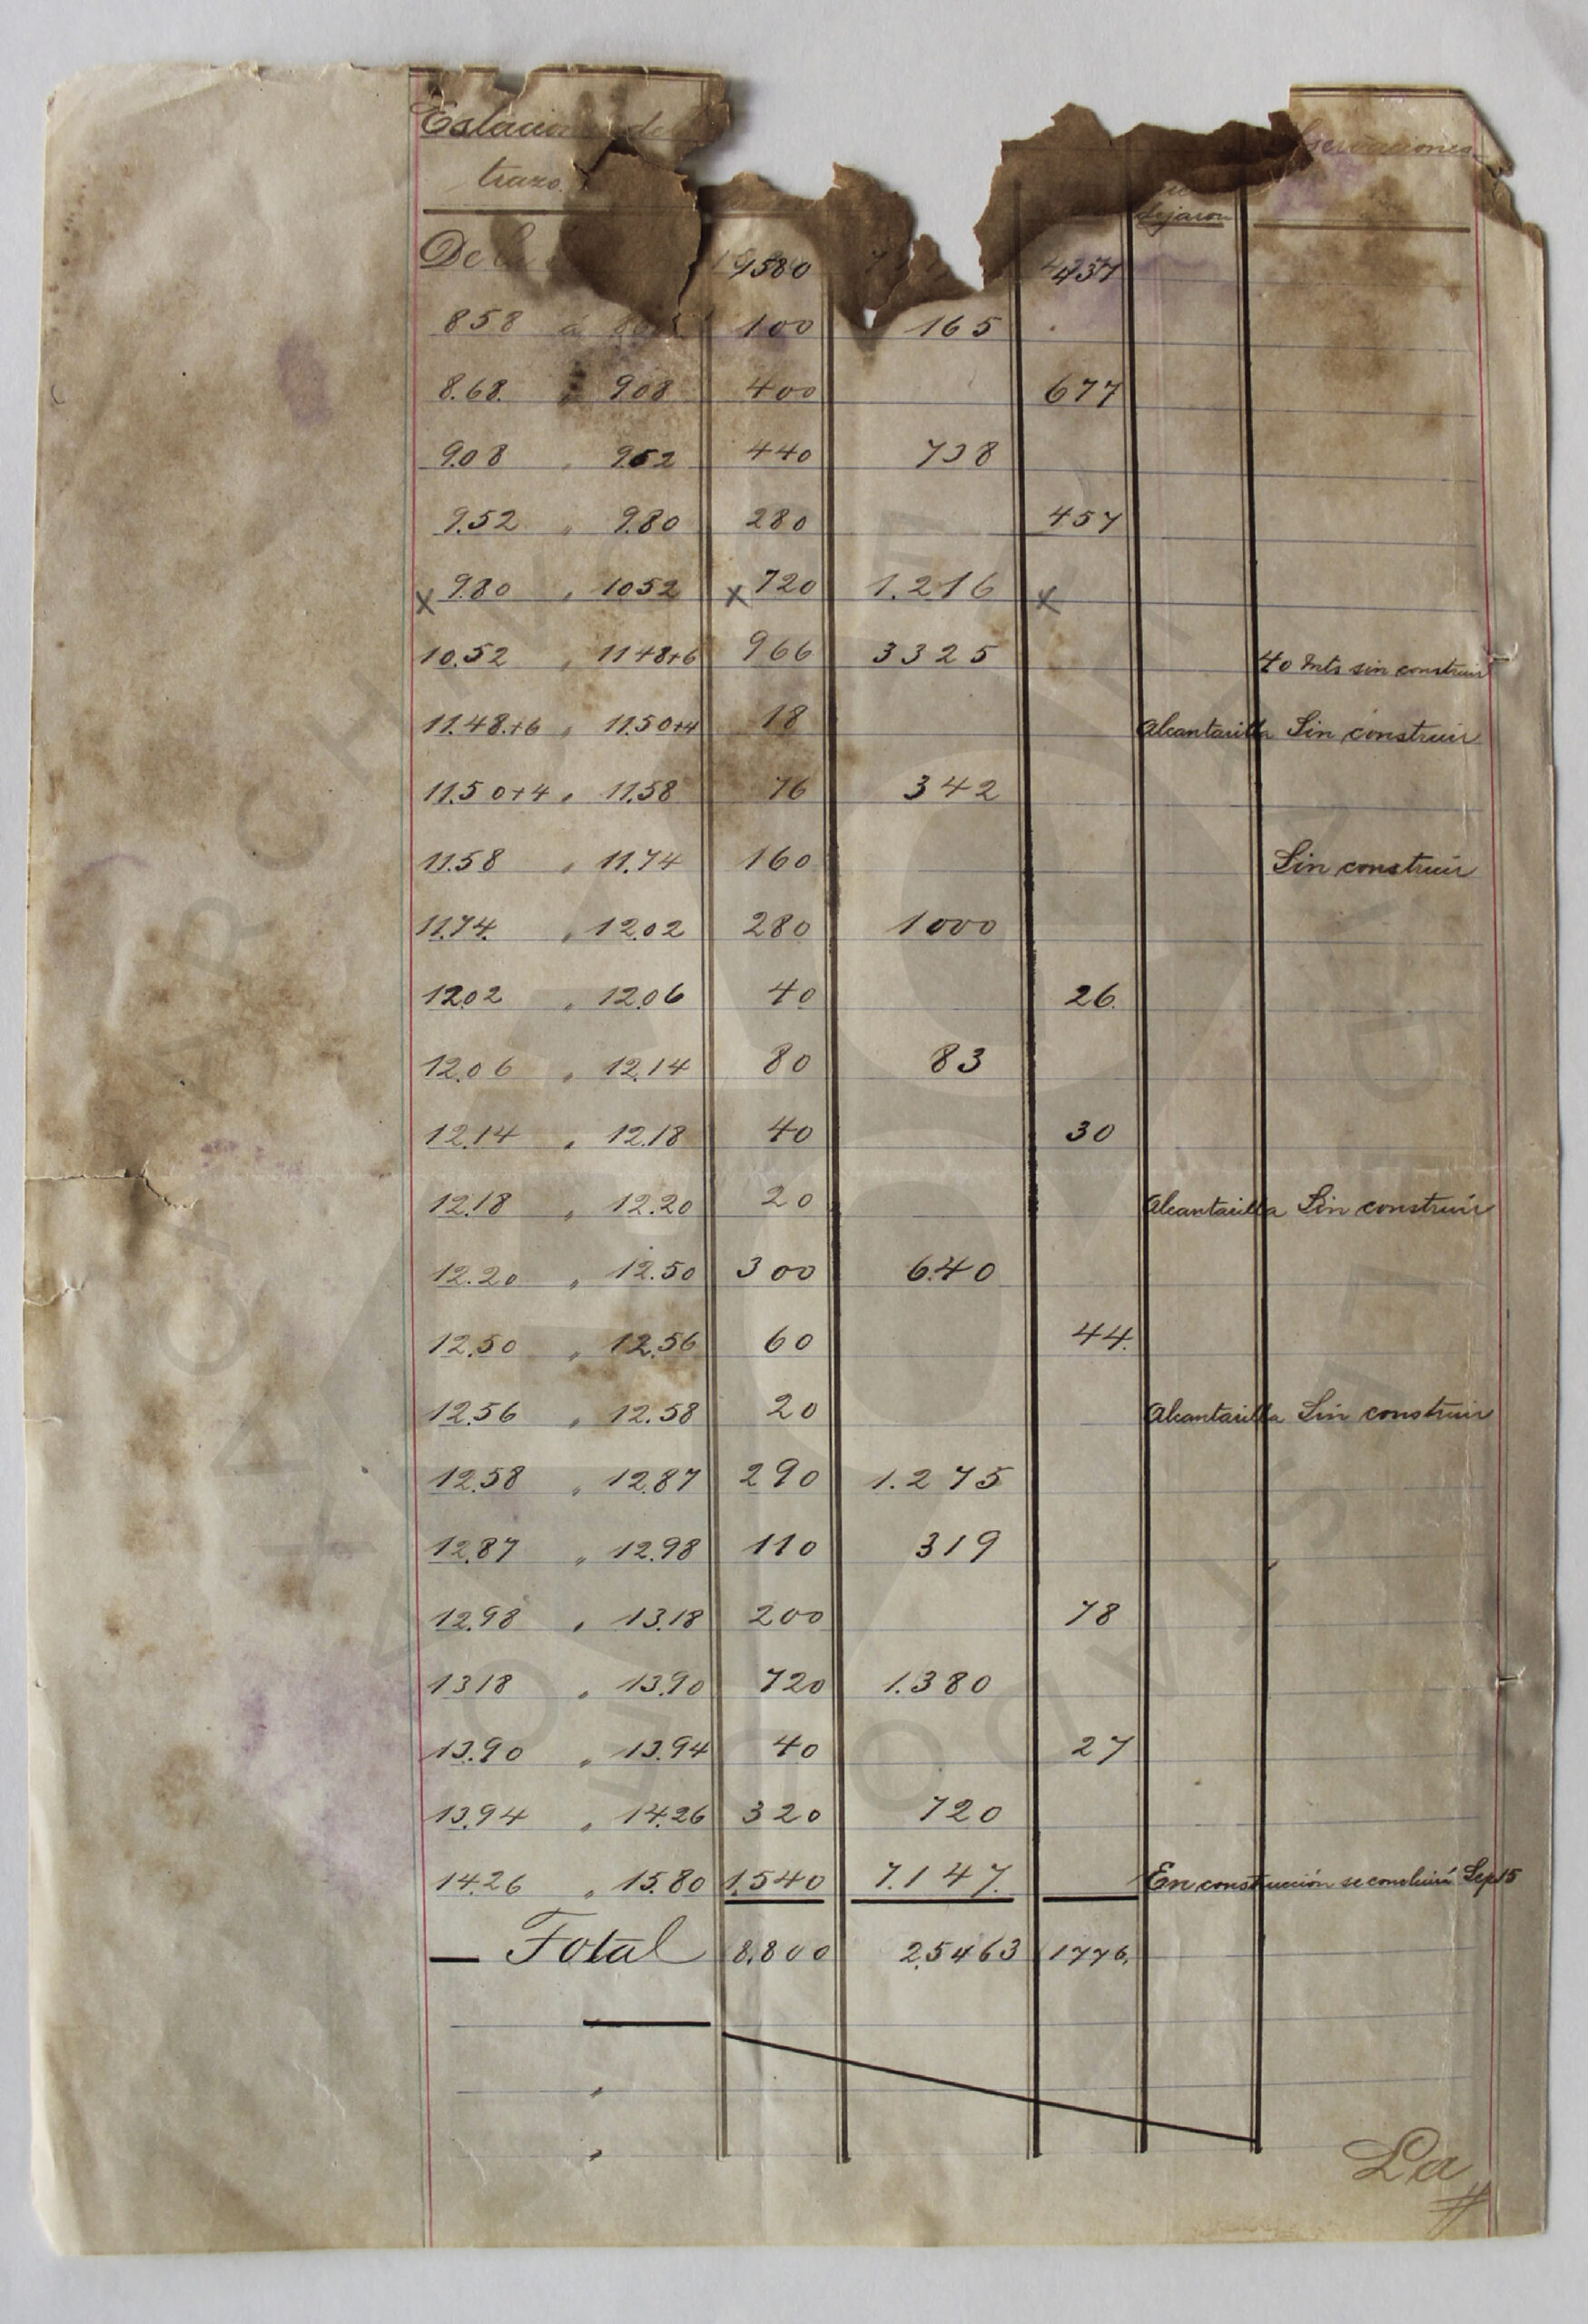 Estaciones del Observaciones
trazo. dejaron
De la 1580 437
858 á 868 100 165
8.68. " 908 400 677
908 " 952 440 738
9.52 " 9.80 280 457
x 9.80 " 1052 x 720 1.216 x
10.52 " 1148+6 966 3325 40 Mts sin construir
11.48.+6 " 11.50+4 18 Alcantarilla Sin construir
11.50+4 " 11.58 76 342
11.58 " 11.74 160 Sin construir
11.74. " 12.02 280 1000
1202 " 12.06 40 26.
12.06 " 12.14 80 83
12.14 " 12.18 40 30
12.18 " 12.20 20 Alcantarilla Sin construir
12.20 " 12.50 300 640
12.50 " 12.56 60 44.
12.56 " 12.58 20 Alcantarilla Sin construir
12.58 " 12.87 290 1.275
12.87 " 12.98 110 319
12.98 " 13.18 200 78
1318 " 13.90 720 1.380
13.90 " 13.94 40 27
13.94 " 14.26 320 720
14.26 " 15.80 1.540 7.147. En construcción se concluirá Sep 15
Total 8.800 25463 1776.
"
"
La